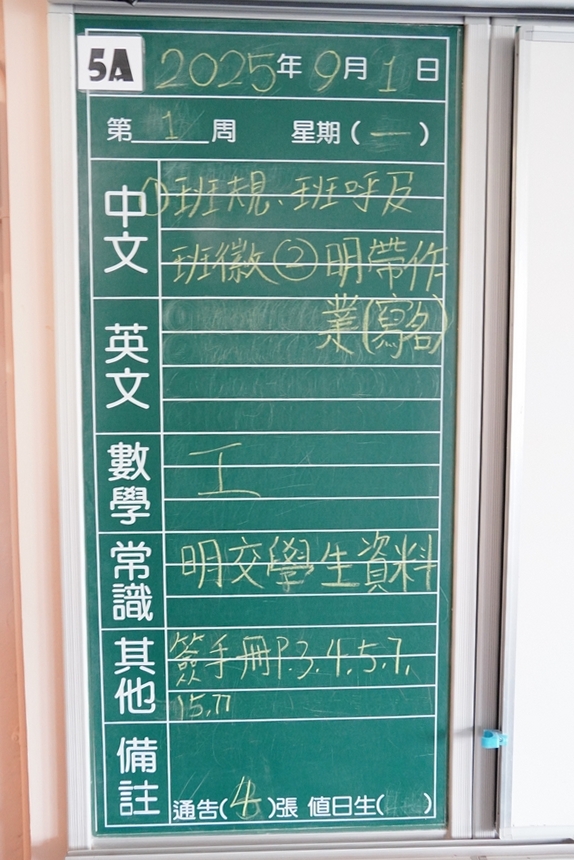 5A 2025年9月1日
第1周 星期(一)
中文 ①班規、班呼及
班徽②明帶作
業(寫名)
英文
數學 工
常識 明交學生資料
其他 簽手冊P.3.4.5.7.
15,17
備註
通告(4)張 值日生( )